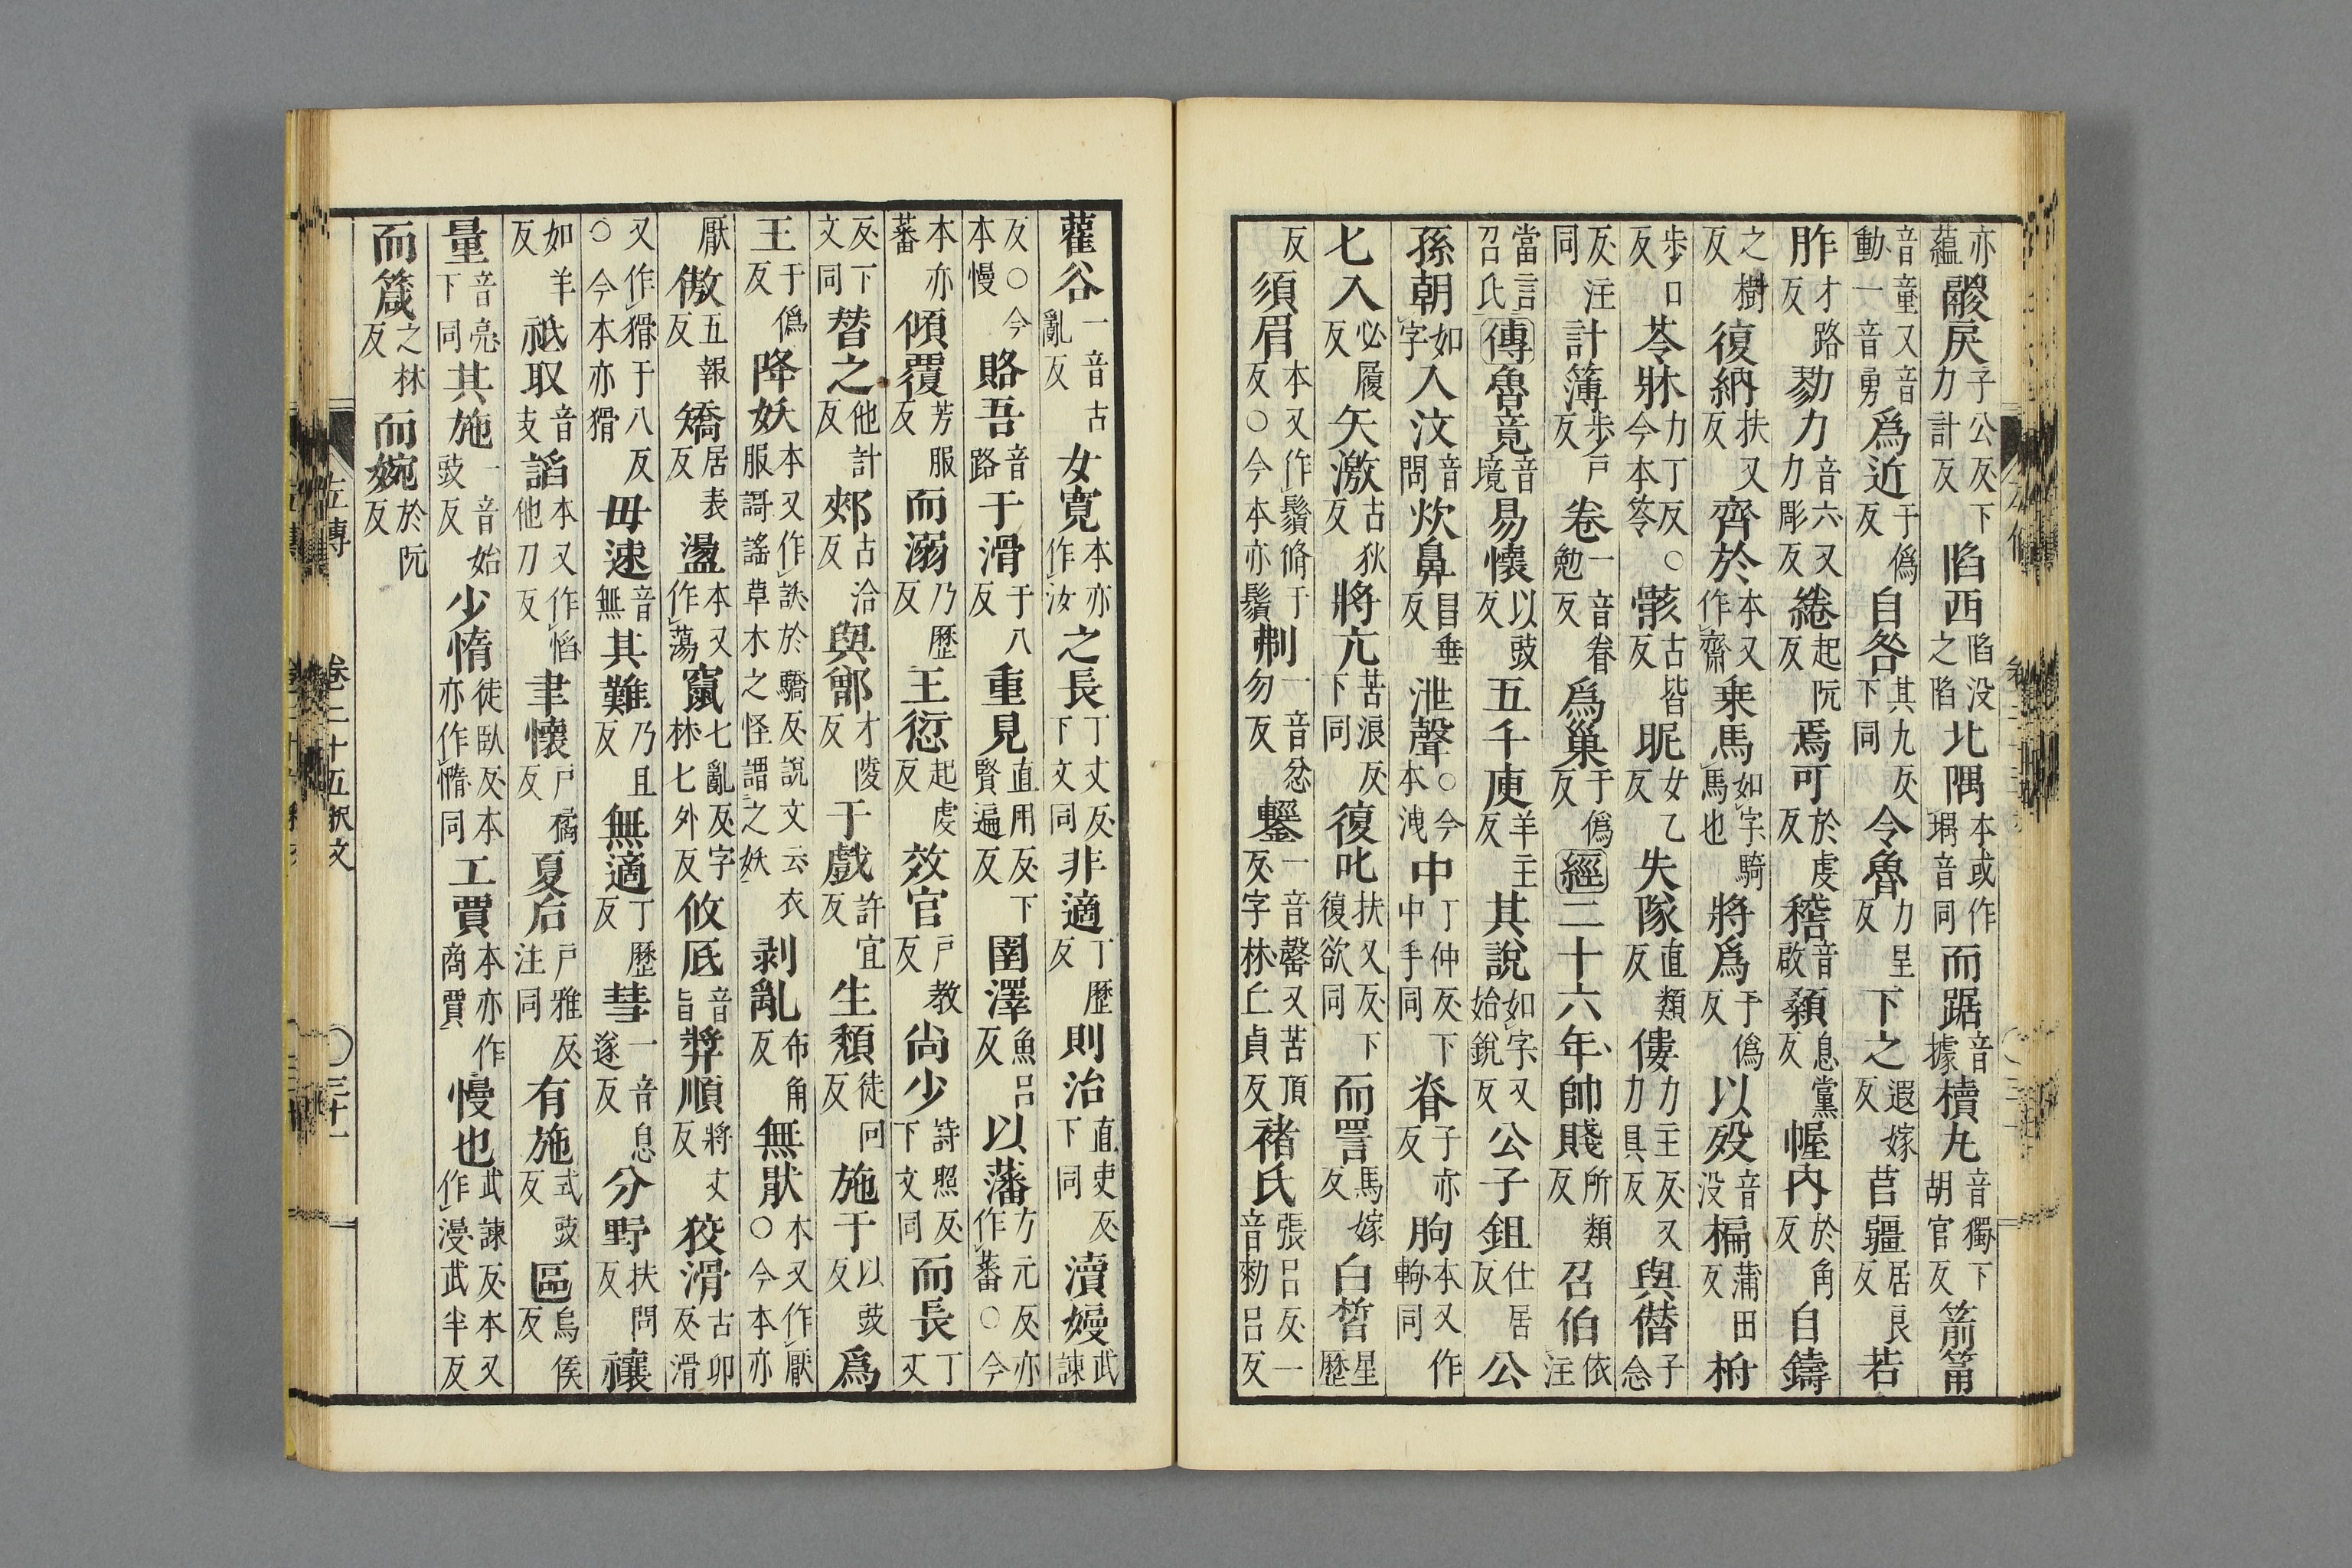 亦蘊鬷戾子公反下力計反陷西陷没之陷北隅本或作堣音同而踞音據櫝丸音獨下胡官反箭筩
音童又音動一音勇爲近于僞反自咎其九反下同令魯力呈反下之遐嫁反莒疆居良反若
胙才路反勠力音六又力彫反綣起阮反焉可於虔反稽音啟顙息黨反幄内於角反自鑄
之樹反復納扶又反齊於本又作齋乗馬如字騎馬也將爲于僞反以殁音没楄蒲田反柎
步口反苓牀力丁反○今本笭骸古皆反昵女乙反失隊直類反僂力主反又力具反與僭子念
反注同計簿步戸反卷一音眷勉反爲巢于僞反經二十六年帥賤所類反召伯依注
當言召氏傳魯竟音境易懷以豉反五千庾羊主反其說如字又始銳反公子鉏仕居反公
孫朝如字入汶音問炊鼻昌垂反泄聲○今本洩中丁仲反下中手同脊子亦反朐本又作軥同
匕入必履反矢激古狄反將亢苦浪反下同復叱扶又反下復欲同而詈馬嫁反白晳星歷
反須眉本又作鬚脩于反○今本亦鬚刜一音忿勿反鑋一音罄又苦頂反字林丘貞反褚氏張呂反一音勑呂反
雚谷一音古亂反女寬本亦作汝之長丁丈反下文同非適丁歷反則治直吏反下同瀆嫚武諫
反○今本慢賂吾音路于滑于八反重見直用反下賢遍反圉澤魚呂反以藩方元反亦作蕃○今
本亦蕃傾覆芳服反而溺乃歷反王愆起虔反效官戸教反尚少詩照反下文同而長丁丈
反下文同替之他計反郟古洽反與鄫才陵反于戲許宜反生頹徒回反施于以豉反爲
王于僞反降妖本又作訞於驕反說文云衣服謌謠草木之怪謂之妖剥亂布角反無猒本又作厭○今本亦
厭傲五報反矯居表反盪本又作蕩竄七亂反字林七外反攸厎音旨奬順將丈反狡滑古卯反滑
又作猾于八反○今本亦猾毋速音無其難乃且反無適丁歷反彗一音息遂反分野扶問反禳
如羊反祇取音支謟本又作慆他刀反聿懷戸橘反夏后戸雅反注同有施式豉反區烏侯反
量音亮下同其施一音始豉反少惰徒臥反本亦作憜同工賈本亦作商賈慢也武諫反本又作漫武半反
而箴之林反而婉於阮反
左傳 卷二十五釈文 ○三十一